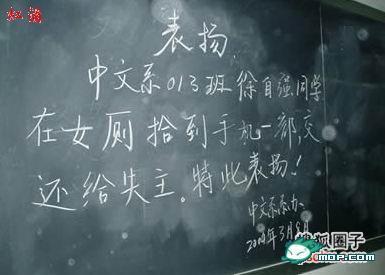 表扬
中文系013班徐自强同学
在女厕拾到手机一部,交
还给失主。特此表扬!
中文系系办
圈子
MOP.COM